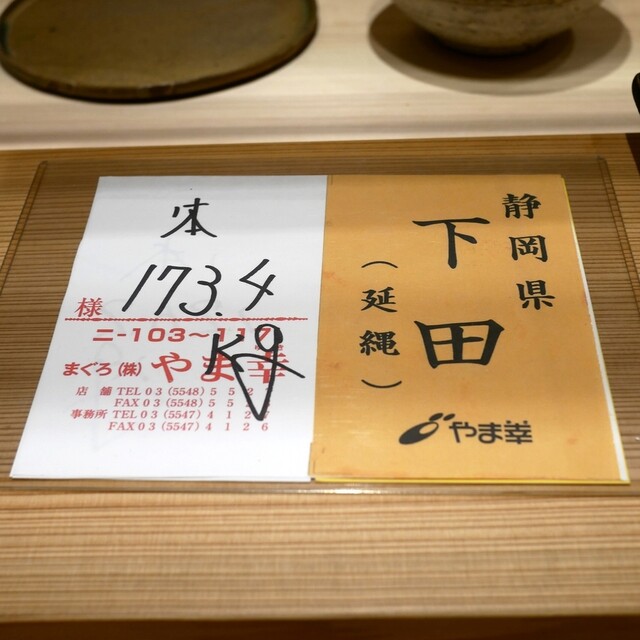 本
173.4
Kg
様
ニ-103〜117
まぐろ(株)やま幸
店 舗 TEL 03 (5548) 5 5 2
FAX 03 (5548) 5 5
事務所 TEL 03 (5547) 4 1 2 7
FAX 03 (5547) 4 1 2 6
静岡県
下田
(延縄)
やま幸